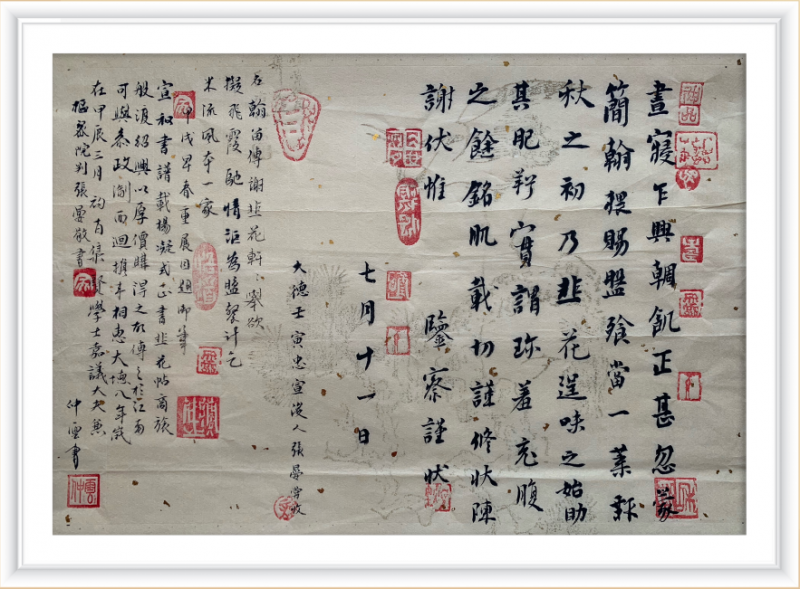 晝寢乍興輖飢正甚忽蒙
簡翰猥賜盤飧當一葉報
秋之初乃韭花逞味之始助
其肥羜實謂珍羞充腹
之餘銘肌載切謹修狀陳
謝伏惟 鑒察謹狀
七月十一日
大德壬寅忠宣後人張晏學
名翰留傳謝韭花軒軒舉欲
擬飛霞馳情為盤餐計乞
米流風本一家
甲戌早春重展因題御筆
宣和書譜載楊凝式正書韭花帖商旅
般渡紹興以厚價購得之右傳之於江南
可與泰政而迴相惠大德八年歲
在甲辰三月初吉集賢學士嘉議大夫兼
樞密院判張晏敬書
仲雲書